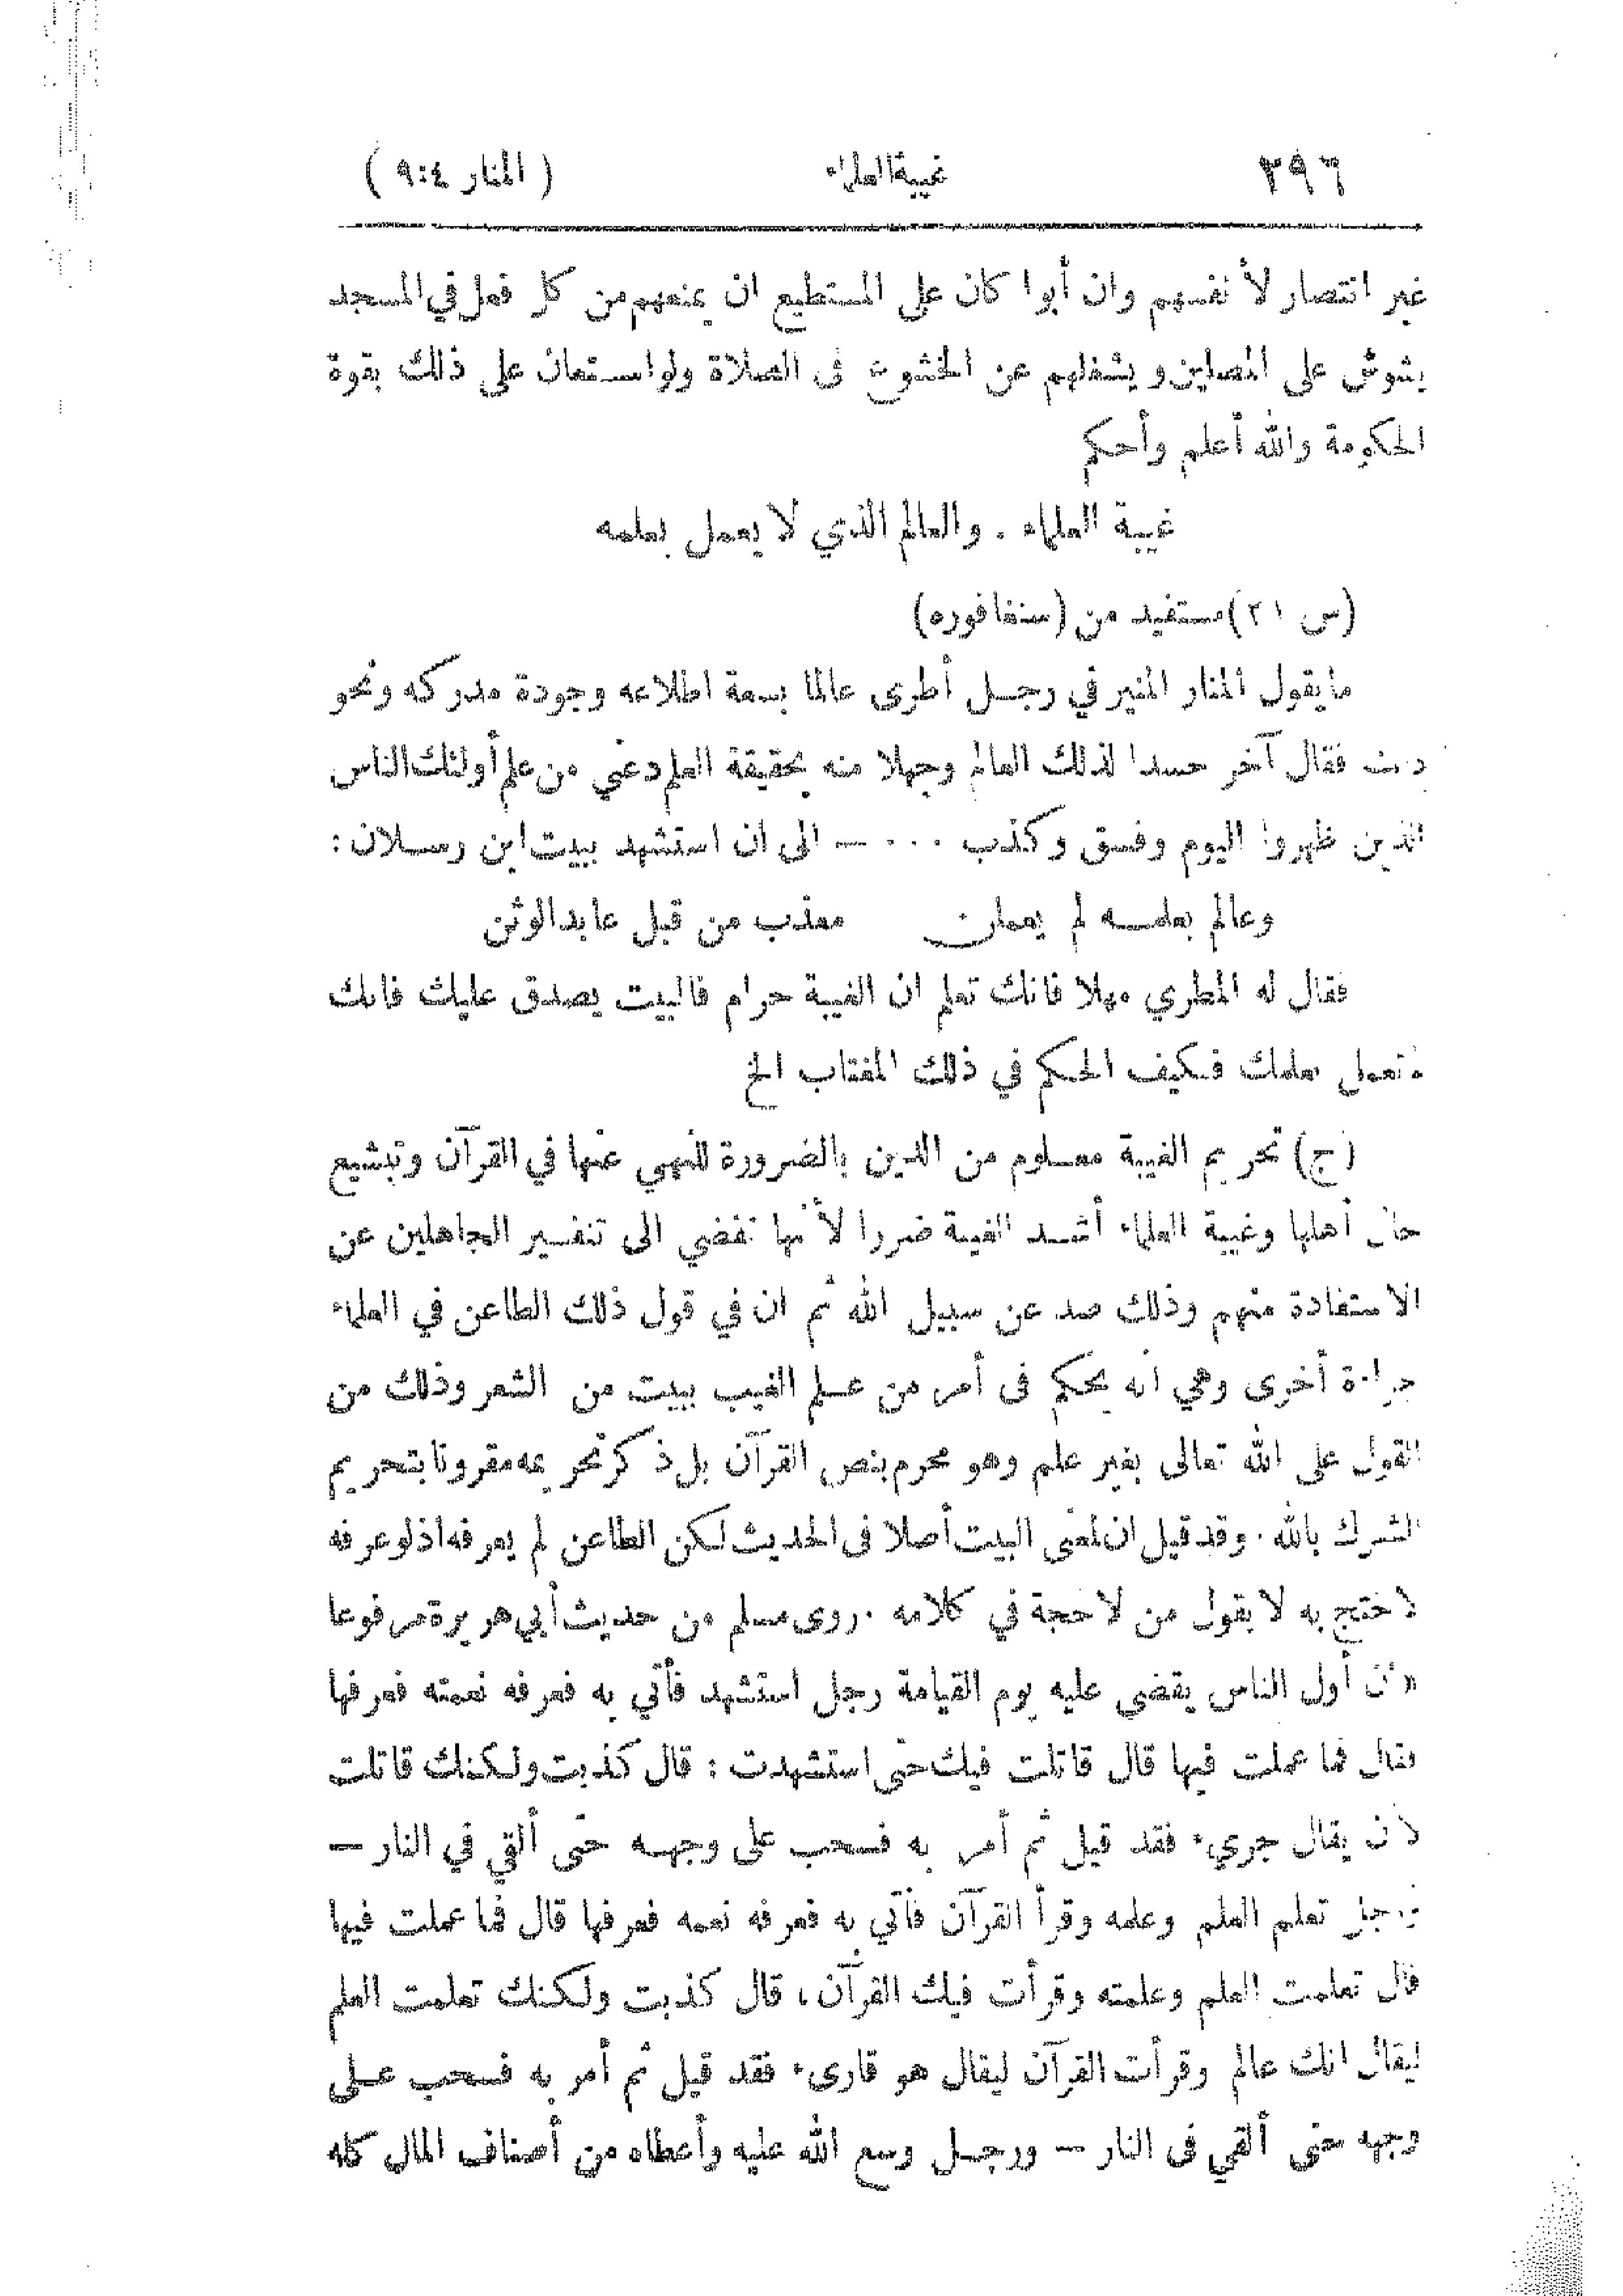 ٢٩٦ غيبة العلماء (المنار ٩:٤)
غير انتصار لأنفسهم وان أبوا كان على المستطيع ان يمنعهم من كل فعل في المسجد
يشوش على المصلين ويشغلهم عن الخشوع فى الصلاة ولو استعان على ذلك بقوة
الحكومة والله أعلم وأحكم
غيبة العلماء . والعالم الذي لا يعمل بعلمه
(س ٢١) مستفيد من (سنغافوره)
ما يقول المنار المنير في رجل أطرى عالما بسعة اطلاعه وجودة مدركه ونحو
فقال آخر حسدا لذلك العالم وجهلا منه بحقيقة العلم دعني من علم أولئك الناس
الذين ظهروا اليوم وفسق وكذب ... — الى ان استشهد ببيت ابن رسلان :
وعالم بعلمه لم يعملن معذب من قبل عابد الوثن
فقال له المطري مهلا فانك تعلم ان الغيبة حرام فالبيت يصدق عليك فانك
تعمل بعلمك فكيف الحكم في ذلك المغتاب الخ
(ج) تحريم الغيبة معلوم من الدين بالضرورة للنهي عنها في القرآن وتبشيع
حال أهلها وغيبة العلماء أشد الغيبة ضررا لأنها تفضي الى تنفير الجاهلين عن
الاستفادة منهم وذلك صد عن سبيل الله ثم ان في قول ذلك الطاعن في العلماء
جراءة أخرى وهي انه يحكم فى أمر من علم الغيب ببيت من الشعر وذلك من
القول على الله تعالى بغير علم وهو محرم بنص القرآن بل ذكر تحريمه مقرونا بتحريم
الشرك بالله . وقد قيل ان لمعنى البيت أصلا فى الحديث لكن الطاعن لم يعرفه اذ لو عرفه
لاحتج به لا بقول من لا حجة في كلامه . روى مسلم من حديث أبي هريرة مرفوعا
« ان أول الناس يقضى عليه يوم القيامة رجل استشهد فأتي به فعرفه نعمته فعرفها
فقال فما عملت فيها قال قاتلت فيك حتى استشهدت : قال كذبت ولكنك قاتلت
لأن يقال جريء فقد قيل ثم أمر به فسحب على وجهه حتى ألقي في النار —
ورجل تعلم العلم وعلمه وقرأ القرآن فأتي به فعرفه نعمه فعرفها قال فما عملت فيها
قال تعلمت العلم وعلمته وقرأت فيك القرآن ، قال كذبت ولكنك تعلمت العلم
ليقال انك عالم وقرأت القرآن ليقال هو قارىء فقد قيل ثم أمر به فسحب على
وجهه حتى ألقي فى النار — ورجل وسع الله عليه وأعطاه من أصناف المال كله